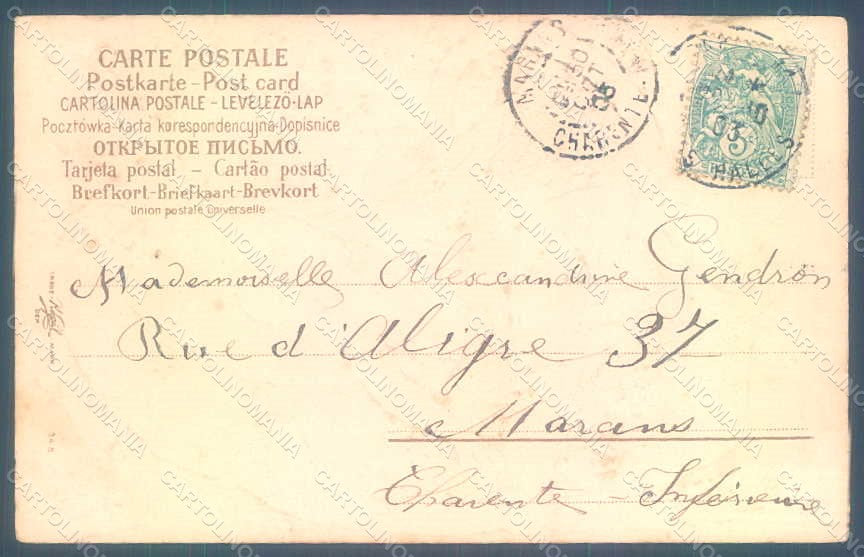 CARTE POSTALE
Postkarte - Post card
CARTOLINA POSTALE - LEVELEZÖ-LAP
Pocztówka-Karta korespondencyjna-Dopisnice
ОТКРЫТОЕ ПИСЬМО.
Tarjeta postal - Cartão postal
Brefkort-Briefkaart-Brevkort
Union postale universelle
MARANS
05
CHARENTE
03
5
Mademoiselle Alexandrine Gendron
Rue d'Aligre 37
Marans
Charente - Inférieure
CARTOLINOMANIA